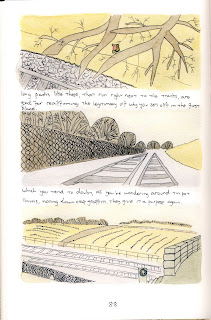 long paths like these, that run right next to the tracks, are
good for reaffirming the legitimacy of why you are still in the first
place.
which you tend to doubt, as you're wandering around in
towns, noting down new graffiti, they give it a purpose again.
88